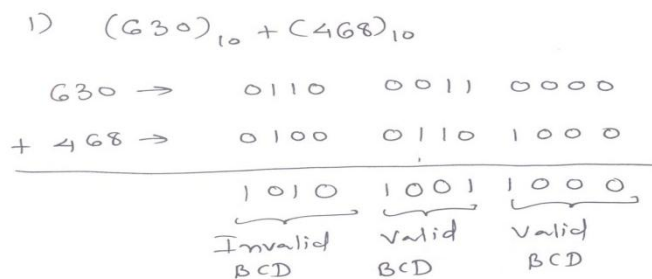 1) (630)10 + (468)10
630 → 0110 0011 0000
+ 468 → 0100 0110 1000
1010 1001 1000
Invalid Valid Valid
BCD BCD BCD